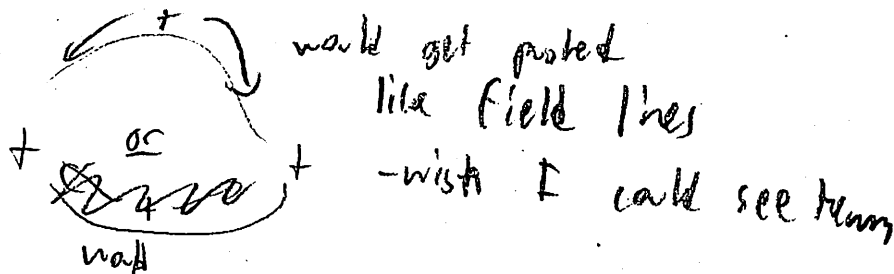 +
would get pushed
like field lines
+ or +
-wish I could see them